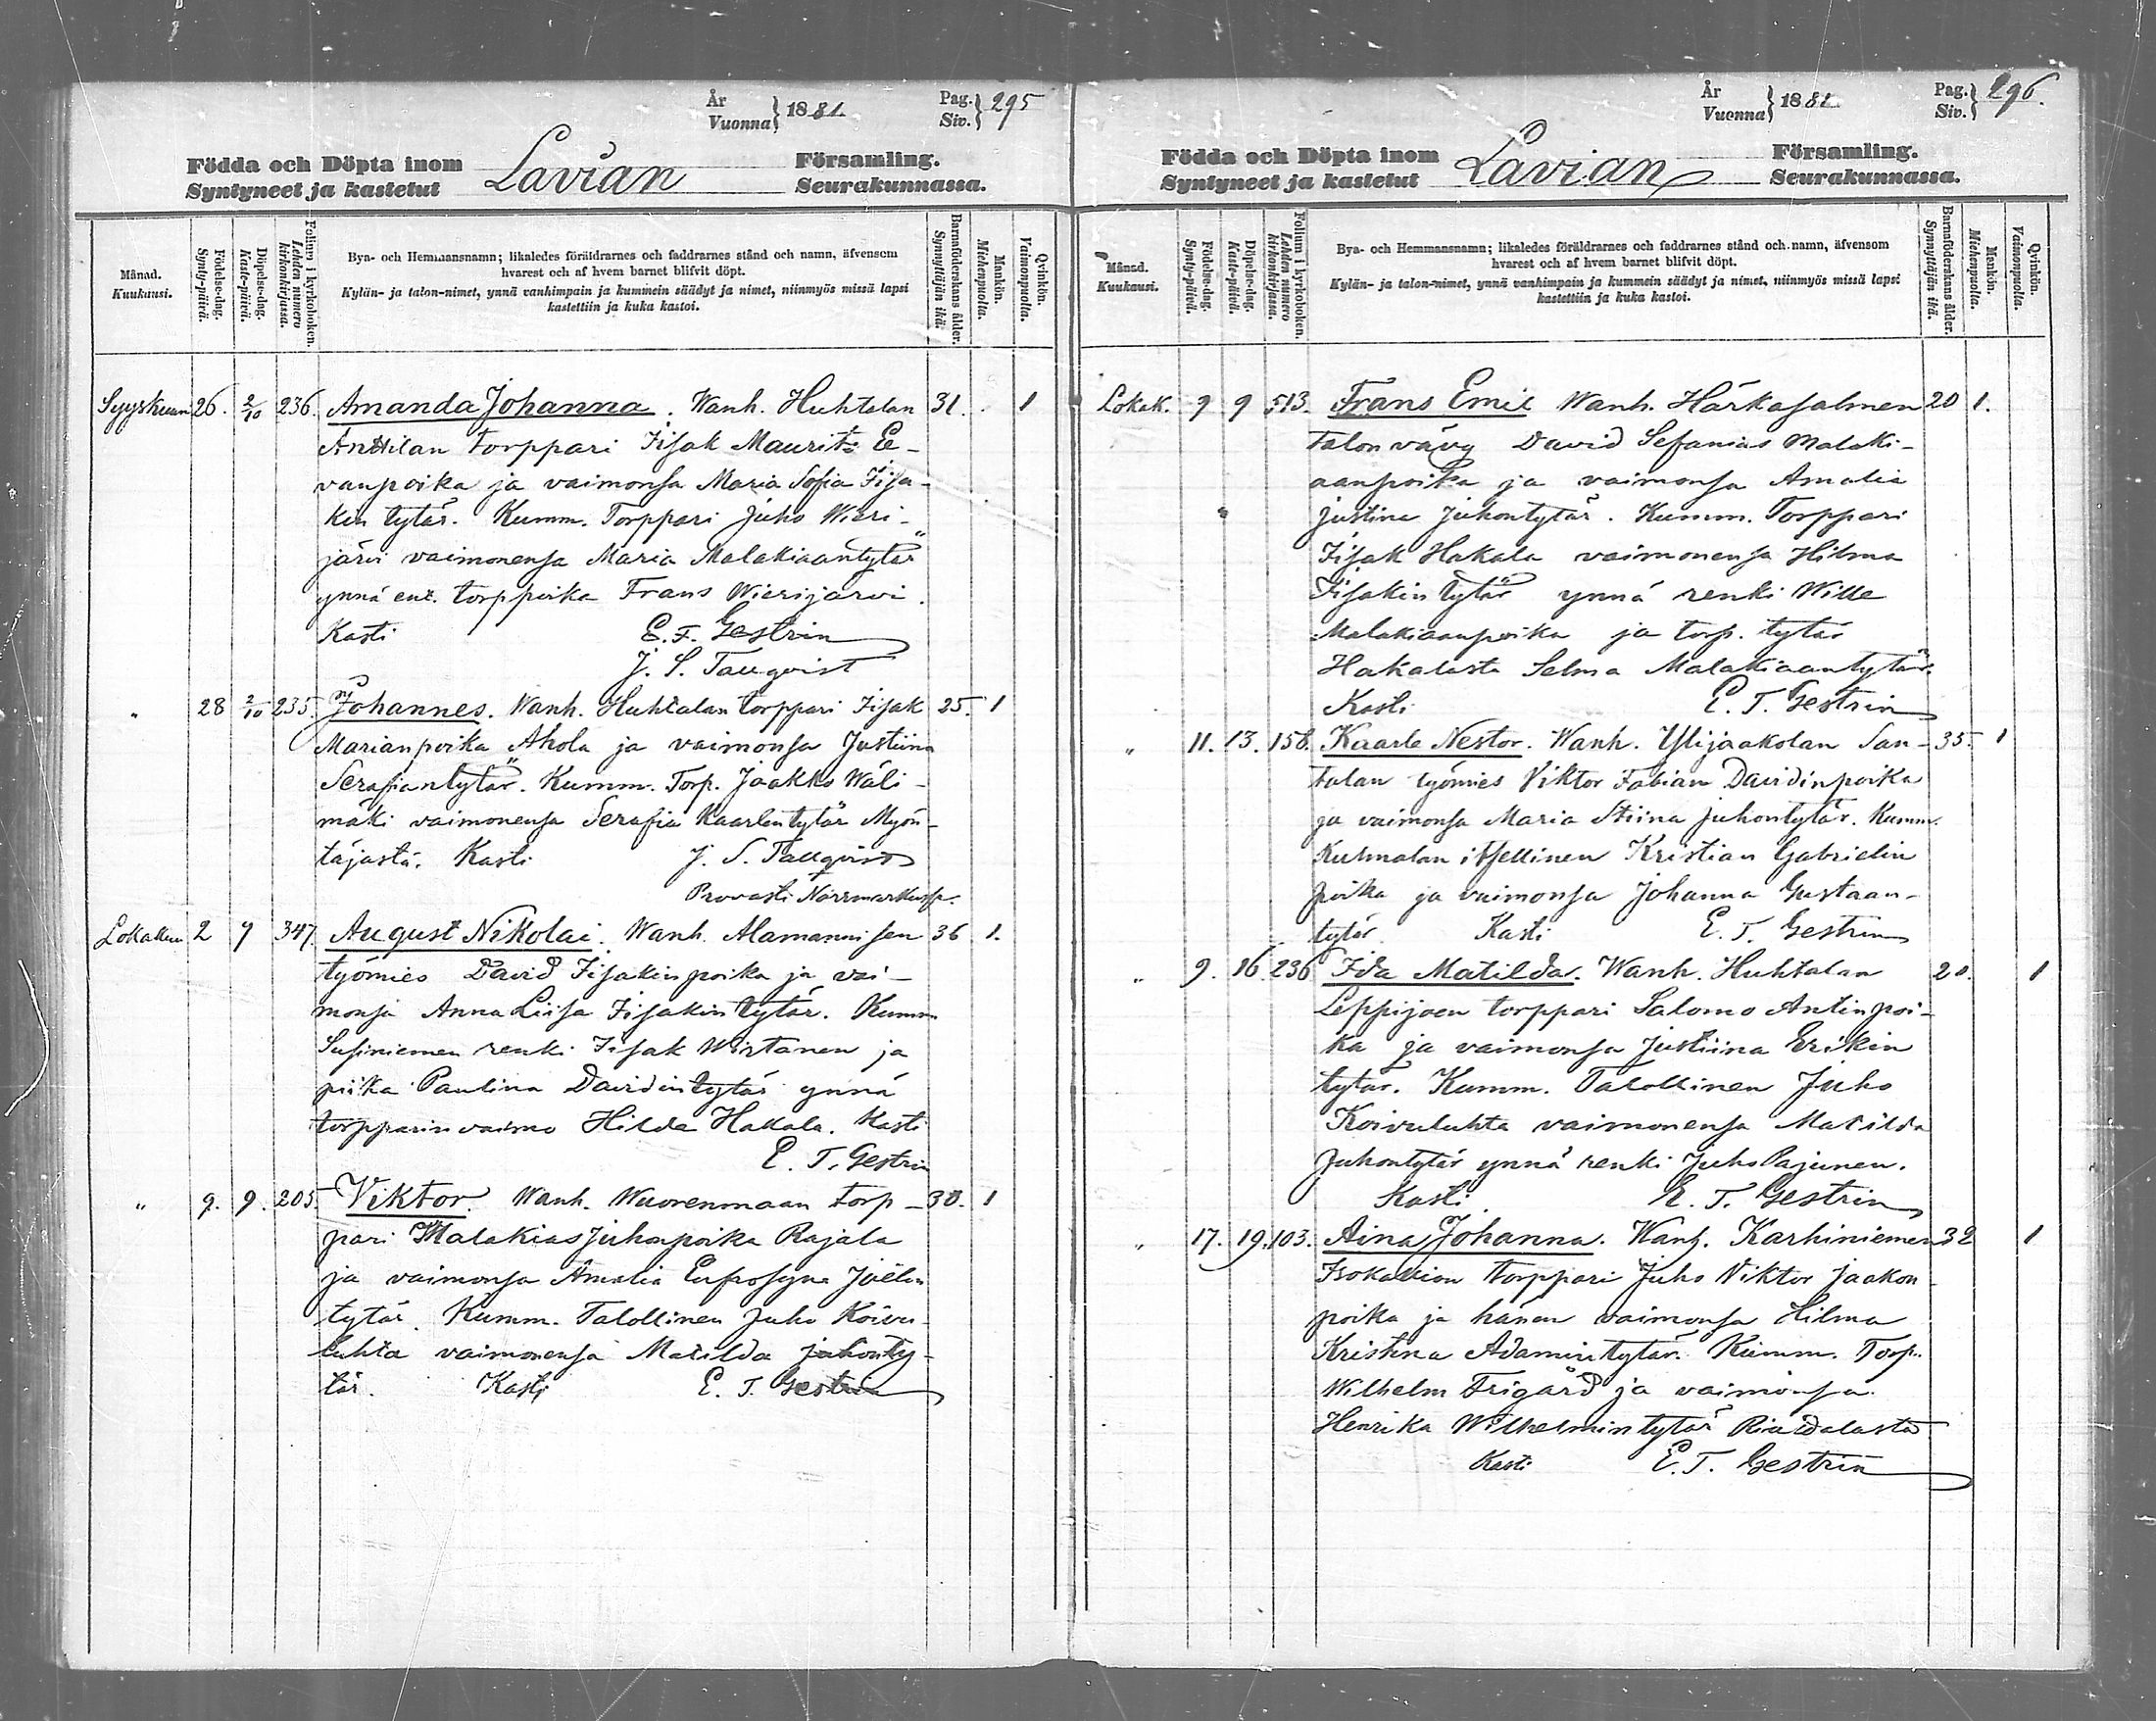 År
Vuonna } 1881.
Pag.
Siv. } 295
Födda och Döpta inom
Syntyneet ja kastetut
Lavian
Församling.
Seurakunnassa.
Månad.
Kuukausi.
Födelse-dag.
Synty-päivä.
Döpelse-dag.
Kaste-päivä.
Folium i kyrkoboken.
Lehden numero kirkonkirjassa.
Bya- och Hemmansnamn; likaledes föräldrarnes och faddrarnes stånd och namn, äfvensom
hvarest och af hvem barnet blifvit döpt.
Kylän- ja talon-nimet, ynnä vanhimpain ja kummein säädyt ja nimet, niinmyös missä lapsi
kastettiin ja kuka kastoi.
Barnaföderskans ålder.
Synnyttäjän ikä.
Mankön.
Miehenpuolia.
Qvinkön.
Vaimonpuolia.
Syyskuun 26. 2/10 236. Amanda Johanna. Wanh. Huhtalan 31. 1
Anttilan torppari Iisak Maurits Ee-
vanpoika ja vaimonsa Maria Sofia Iisa-
kin tytär. Kumm. Torppari Juho Wieri-
järvi vaimonensa Maria Malakiaantytär
ynnä torppoika Frans Wierijärvi.
Kasti E. F. Gestrin
J. S. Tallqvist
" 28 2/10 235. Johannes. Wanh. Huhtalan torppari Iisak 25. 1
Marianpoika Ahola ja vaimonsa Justiina
Serafiantytär. Kumm. Torp. Jaakko Wäli-
mäki vaimonensa Serafia Kaarlentytär Myön-
täjästä. Kasti J. S. Tallqvist
Provasti Norrmarkussa.
Lokakuu 2 9 347. August Nikolai. Wanh. Alamannisen 36 1.
työmies David Iisakinpoika ja vai-
monsa Anna Liisa Iisakin tytär. Kumm
Susiniemen renki Iisak Wirtanen ja
piika Paulina Davidintytär ynnä
torpparin vaimo Hilda Hakala. Kasti
E. T. Gestrin
" 9. 9. 205. Viktor. Wanh. Wuorenmaan torp- 30. 1
pari Malakias Juhonpoika Rajala
ja vaimonsa Amalia Eufrosyna Joelin
tytär. Kumm. Talollinen Juho Koivu-
luhta vaimonensa Matilda Juhonty-
tär. Kasti E. T. Gestrin
År
Vuonna } 1881.
Pag.
Siv. } 296.
Födda och Döpta inom
Syntyneet ja kastetut
Lavian
Församling.
Seurakunnassa.
Månad.
Kuukausi.
Födelse-dag.
Synty-päivä.
Döpelse-dag.
Kaste-päivä.
Folium i kyrkoboken.
Lehden numero kirkonkirjassa.
Bya- och Hemmansnamn; likaledes föräldrarnes och faddrarnes stånd och namn, äfvensom
hvarest och af hvem barnet blifvit döpt.
Kylän- ja talon-nimet, ynnä vanhimpain ja kummein säädyt ja nimet, niinmyös missä lapsi
kastettiin ja kuka kastoi.
Barnaföderskans ålder.
Synnyttäjän ikä.
Mankön.
Miehenpuolia.
Qvinkön.
Vaimonpuolia.
Lokak. 9 9 513. Frans Emil Wanh. Härkasalmen 20 1.
talon vävy David Sefanias Malaki-
aanpoika ja vaimonsa Amalia
Justina Juhontytär. Kumm. Torppari
Iisak Hakala vaimonensa Hilma
Iisakin tytär ynnä renki Wille
Malakiaanpoika ja torp. tytär
Hakalasta Selma Malakiaantytär.
Kasti E. T. Gestrin
" 11. 13. 158. Kaarle Nestor. Wanh. Ylijaakolan San- 35. 1
talan työmies Viktor Fabian Davidinpoika
ja vaimonsa Maria Stiina Juhontytär. Kumm.
Kulmalan itsellinen Kristian Gabrielin
poika ja vaimonsa Johanna Gustaan-
tytär. Kasti E. T. Gestrin
" 9. 16. 236 Ida Matilda. Wanh. Huhtalan 20. 1
Leppijoen torppari Salomo Antinpoi-
ka ja vaimonsa Justiina Erikin
tytär. Kumm. Talollinen Juho
Koivuluhta vaimonensa Matilda
Juhontytär ynnä renki Juho Pajunen.
Kasti. E. T. Gestrin
" 17. 19. 103. Aina Johanna. Wanh. Karhiniemen 32 1
Isokallion torppari Juho Viktor Jaakon-
poika ja hänen vaimonsa Hilma
Kristina Adamin tytär. Kumm. Torp.
Wilhelm Frigård ja vaimonsa
Henrika Wilhelmin tytär
Kasti E. T. Gestrin